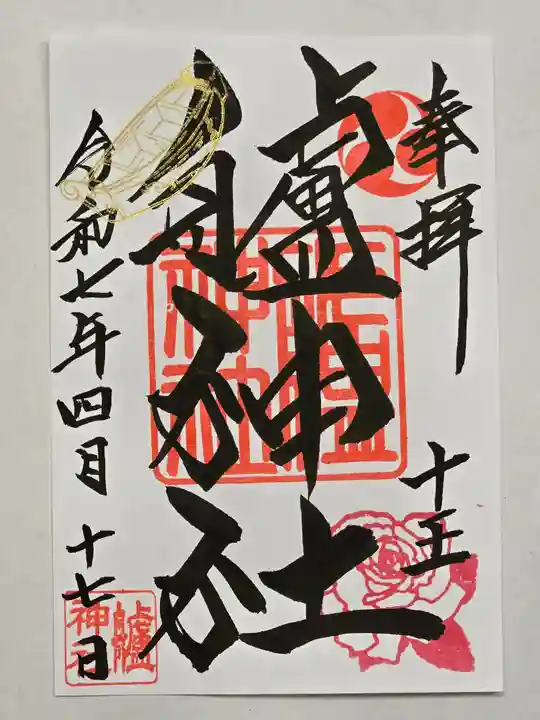 奉拝
十王
艫神社
艫神社
令和七年四月十七日
艫神社